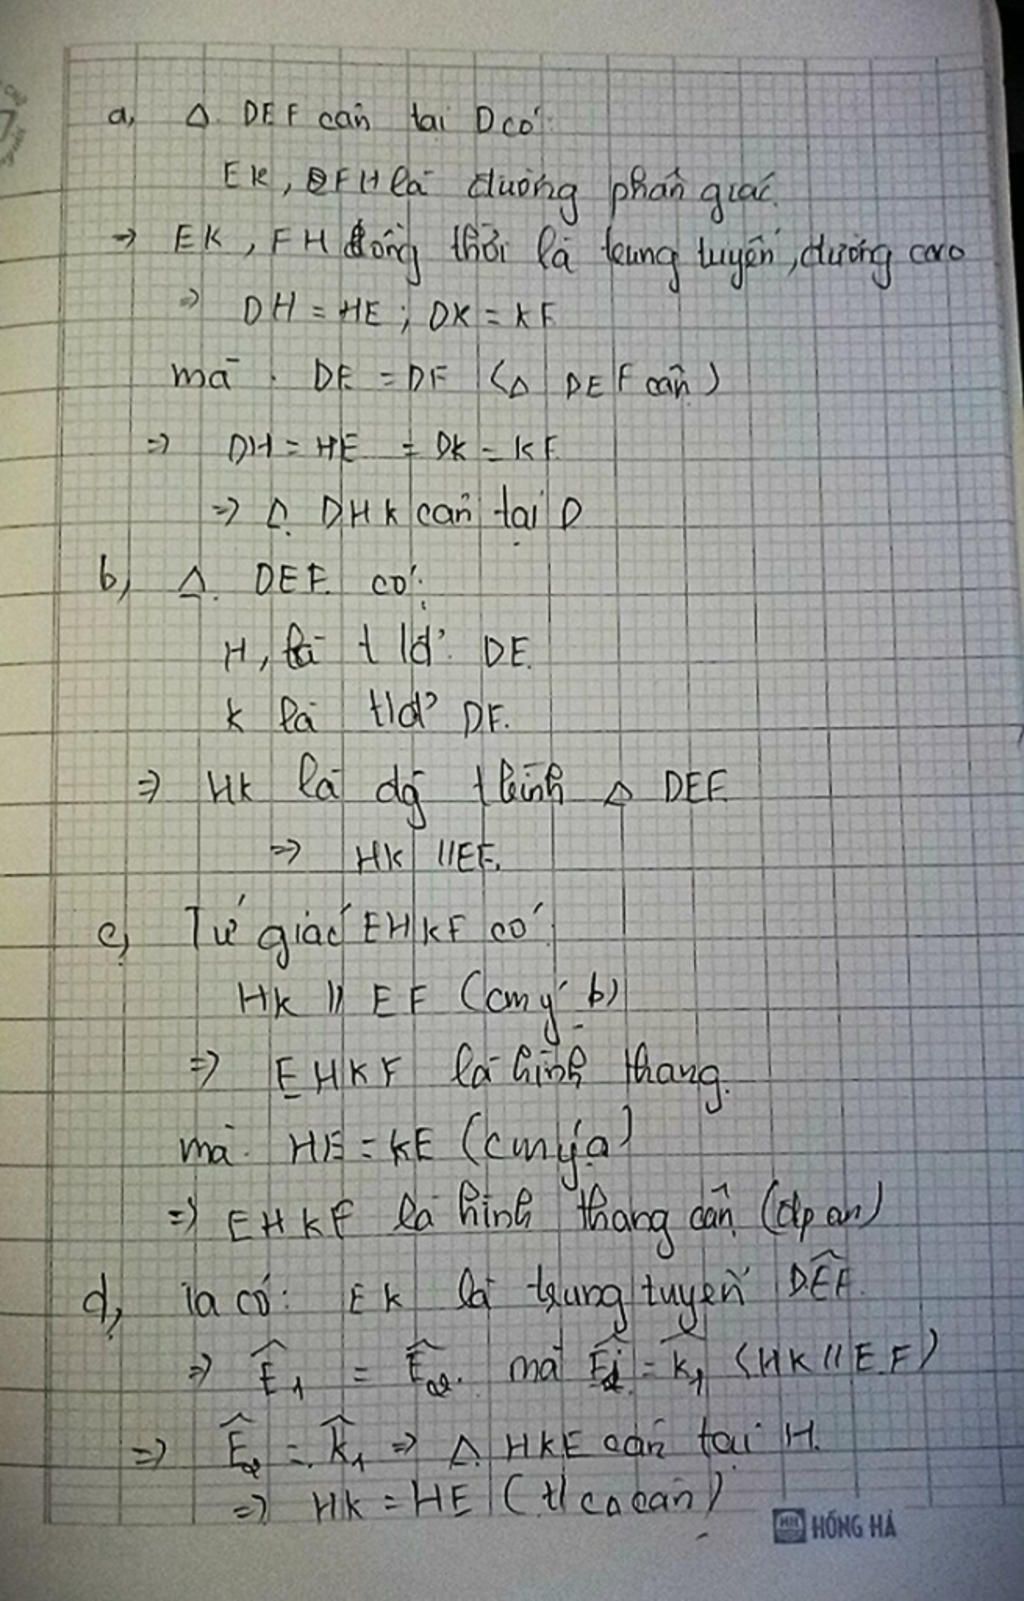 a, Δ DEF cân tại D có:
EK, FH là đường phân giác.
=> EK, FH đồng thời là trung tuyến, đường cao
=> DH = HE ; DK = KF
mà DE = DF (Δ DEF cân)
=> DH = HE = DK = KF
=> Δ DHK cân tại D
b, Δ DEF có:
H, là t/đ' DE.
K là t/đ' DF.
=> HK là đg tbình Δ DEF
=> HK // EF.
c, Tứ giác EHKF có
HK // EF (cm ý b)
=> EHKF là hình thang.
mà HE = KE (cm ý a)
=> EHKF là hình thang cân (đpcm)
d, Ta có: EK là trung tuyến DÊF.
=> Ê1 = Ê2. mà Ê1 = K̂1 (HK // EF)
=> Ê2 = K̂1 => Δ HKE cân tại H.
=> HK = HE (t/c Δ cân)
HH HỒNG HÀ